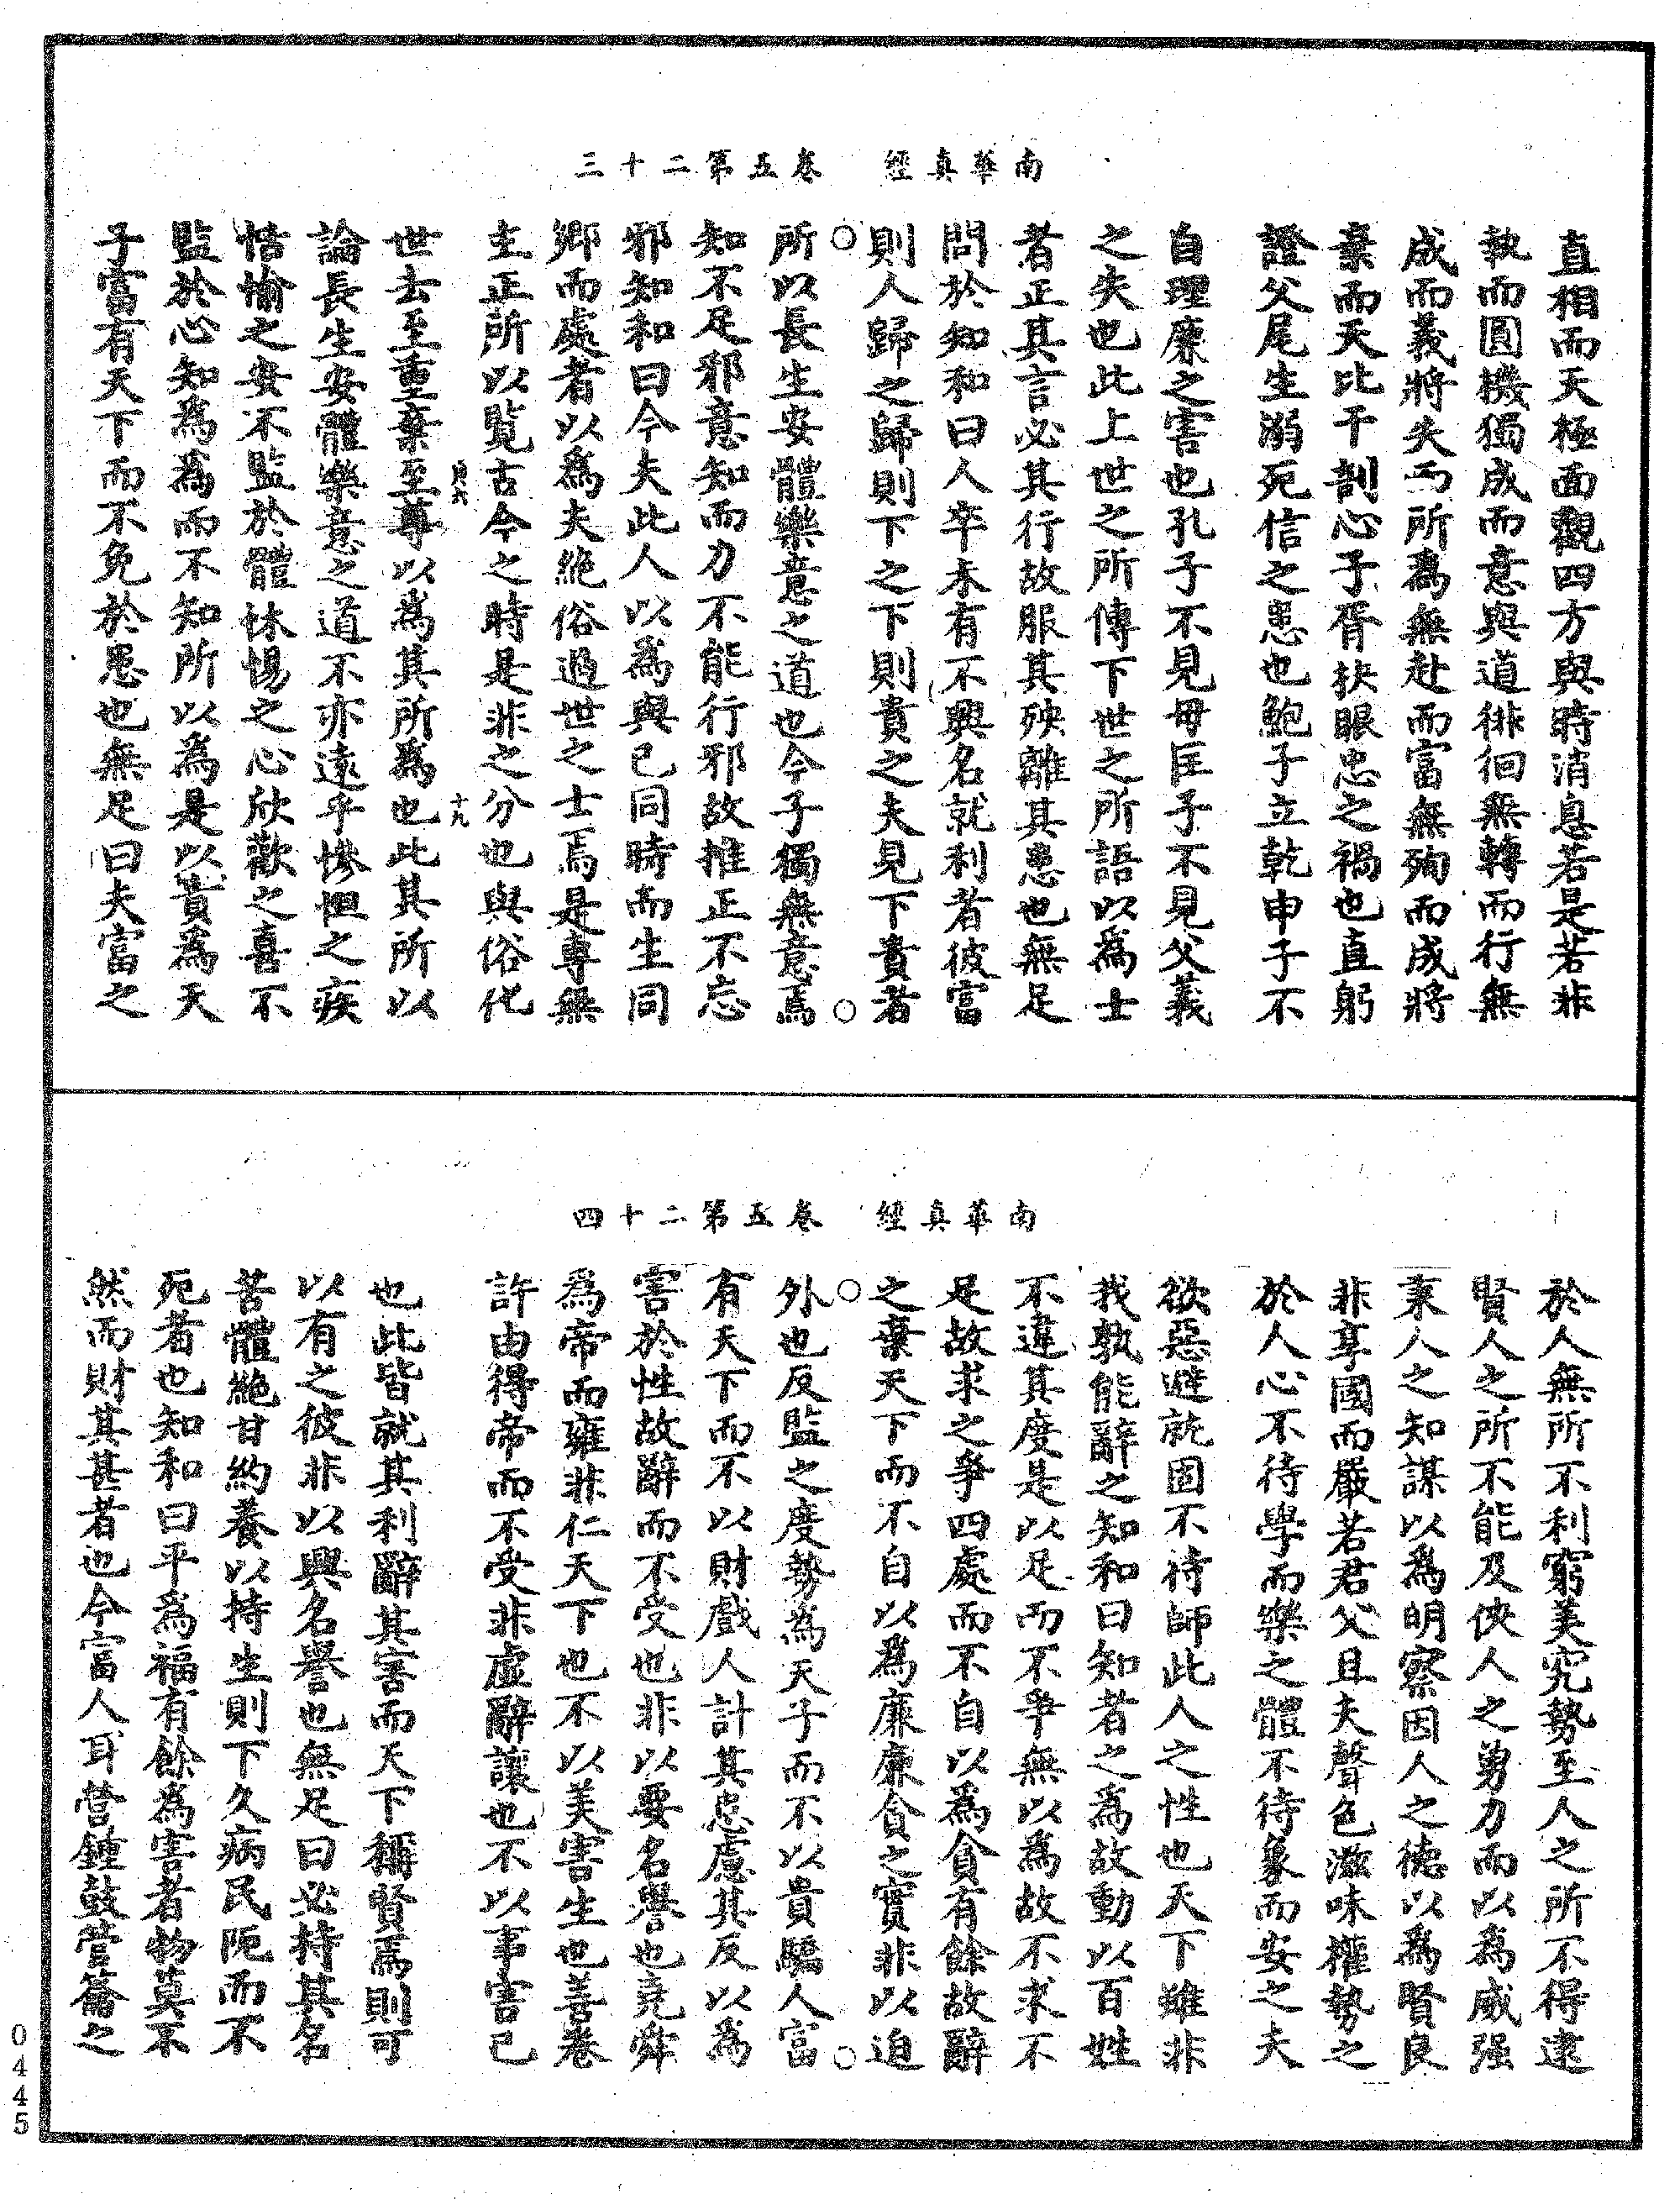 南華真經　卷五第二十三
直相而天極面觀四方與時消息若是若非
執而圓機獨成而意與道徘徊無轉而行無
成而義將失而所爲無赴而富無殉而成將
棄而天比干剖心子胥抉眼忠之禍也直躬
證父尾生溺死信之患也鮑子立乾申子不
自理廉之害也孔子不見母匡子不見父義
之失也此上世之所傳下世之所語以爲士
者正其言必其行故服其殃離其患也無足
問於知和曰人卒未有不興名就利者彼富
則人歸之歸則下之下則貴之夫見下貴者
所以長生安體樂意之道也今子獨無意焉
知不足邪意知而力不能行邪故推正不忘
邪知和曰今夫此人以爲與己同時而生同
鄉而處者以爲夫絶俗過世之士焉是專無
主正所以覧古今之時是非之分也與俗化
十九
世去至重棄至尊以爲其所爲也此其所以
論長生安體樂意之道不亦遠乎慘怛之疾
恬愉之安不監於體怵惕之心欣歡之喜不
監於心知爲爲而不知所以爲是以貴爲天
子富有天下而不免於患也無足曰夫富之
南華真經　卷五第二十四
於人無所不利窮美究勢至人之所不得逮
賢人之所不能及俠人之勇力而以爲威强
秉人之知謀以爲明察因人之德以爲賢良
非享國而嚴若君父且夫聲色滋味權勢之
於人心不待學而樂之體不待象而安之夫
欲惡避就固不待師此人之性也天下雖非
我孰能辭之知和曰知者之爲故動以百姓
不違其度是以足而不爭無以爲故不求不
足故求之爭四處而不自以爲貪有餘故辭
之棄天下而不自以爲廉廉貪之實非以迫
外也反監之度勢爲天子而不以貴驕人富
有天下而不以財戲人計其患慮其反以爲
害於性故辭而不受也非以要名譽也堯舜
爲帝而雍非仁天下也不以美害生也善卷
許由得帝而不受非虛辭讓也不以事害己
也此皆就其利辭其害而天下稱賢焉則可
以有之彼非以興名譽也無足曰必持其名
苦體絶甘約養以持生則下久病民阨而不
死者也知和曰平爲福有餘爲害者物莫不
然而財其甚者也今富人耳營鍾鼓管籥之
0445